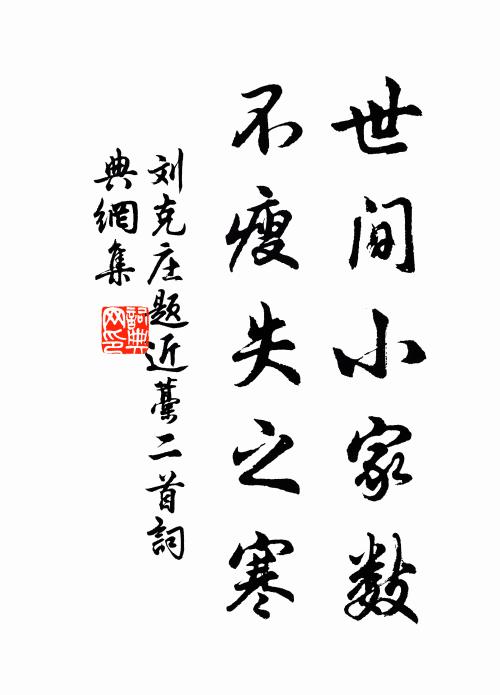 世间小家数
不瘦失之寒
刘克庄题近藁二首詞
典網集
詞典
网印